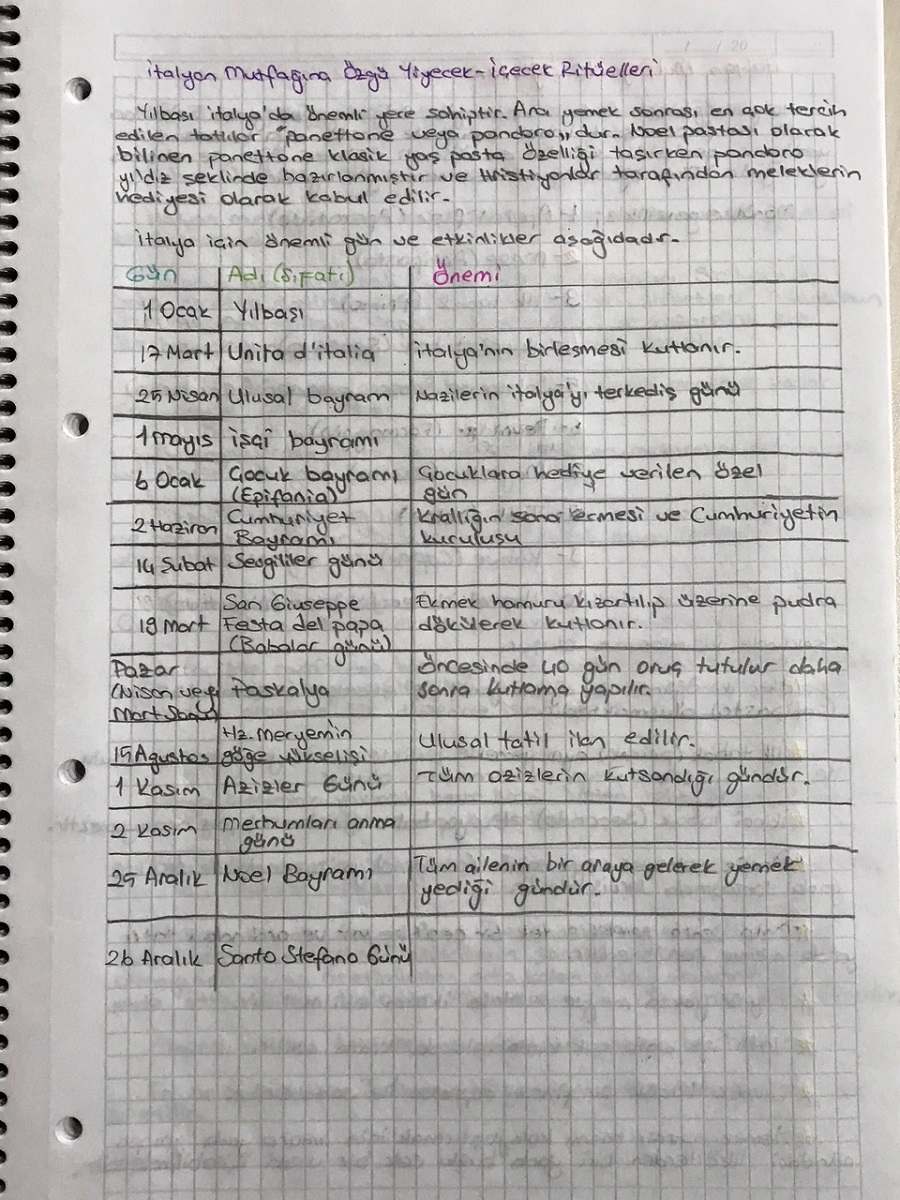 İtalyan Mutfağına Özgü Yiyecek-İçecek Ritüelleri
Yılbaşı İtalya'da önemli yere sahiptir. Ana yemek sonrası en çok tercih
edilen tatlılar "panettone veya pandoro,, dur. Noel pastası olarak
bilinen panettone klasik yaş pasta özelliği taşırken pandoro
yıldız şeklinde hazırlanmıştır ve Hristiyanlar tarafından meleklerin
hediyesi olarak kabul edilir.
İtalya için önemli gün ve etkinlikler aşağıdadır.
Gün Adı (Sıfatı) Önemi
1 Ocak Yılbaşı
17 Mart Unita d'italia İtalya'nın birleşmesi kutlanır.
25 Nisan Ulusal bayram Nazilerin İtalya'yı terkediş günü
1 mayıs işçi bayramı
6 Ocak Çocuk bayramı Çocuklara hediye verilen özel
(Epifania) gün
2 Haziran Cumhuriyet Krallığın sona ermesi ve Cumhuriyetin
Bayramı kuruluşu
14 Şubat Sevgililer günü
San Giuseppe Ekmek hamuru kızartılıp üzerine pudra
19 Mart Festa del papa dökülerek kutlanır.
(Babalar günü)
Pazar Öncesinde 40 gün oruç tutulur daha
(Nisan veya Paskalya sonra kutlama yapılır.
Mart Sonu)
Hz. Meryem'in Ulusal tatil ilan edilir.
15 Agustos göğe yükselişi
1 Kasım Azizler Günü Tüm azizlerin kutsandığı gündür.
2 Kasım Merhumları anma
günü
25 Aralık Noel Bayramı Tüm ailenin bir araya gelerek yemek
yediği gündür.
26 Aralık Santo Stefano Günü